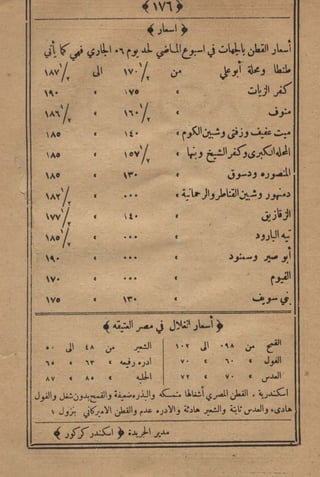 ﴿ ١٧٦ ﴾
﴿ اسعار ﴾
أسعار القطن بالجهات في اسبوع الماضي لحد يوم ٥٦ الجاري فهي كما يأتي
طنطا ومحلة أبوعلي من ١٧٠ ١/٢ الى ١٨٧ ١/٢
كفر الزيات » ١٧٥ » ١٩٠
منوف » ١٦٠ ١/٢ » ١٨٦ ١/٢
ميت عفيف وزفتى وشبين الكوم » ١٤٠ » ١٨٥
المحله الكبرى وكفر الشيخ وبنها » ١٥٧ ١/٢ » ١٨٥
المنصوره ودسوق » ١٣٠ » ١٨٥
دمنهور وشبين القناطر والرحمانية » ٠٠٠ » ١٨٢ ١/٢
الزقازيق » ١٤٠ » ١٧٧ ١/٢
تيه البارود » ٠٠٠ » ١٨٥ ١/٢
أبو صير وسمنود » ٠٠٠ » ١٩٠
الفيوم » ٠٠٠ » ١٧٠
بني سويف » ١٣٠ » ١٧٥
﴿ أسعار الغلال في مصر العتيقه ﴾
القمح من ٠٩٨ الى ١٠٢ الشعير من ٤٨ الى ٥٠
الفول » ٦٠ » ٧٠ ادره رفيعه » ٦٣ » ٦٥
العدس » ٧٠ » ٧٢ الحلبه » ٨٥ » ٨٧
اسكندرية . القطن المصري أشغالها متمسكه والبذره ضعيفة والقمح بدون شغل والفول
هادىء والعدس ثابتة والشعير هادئة والادره عدم والقطن الاميركاني بنزول ١
مدير الجريدة ﴿ اسكندر كركور ﴾